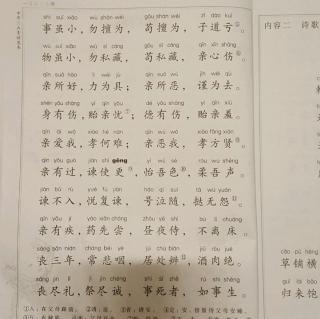 shì suī xiǎo wù shàn wéi gǒu shàn wéi zǐ dào kuī
事虽小，勿擅为，苟擅为，子道亏。
wù suī xiǎo wù sī cáng gǒu sī cáng qīn xīn shāng
物虽小，勿私藏，苟私藏，亲心伤。
qīn suǒ hào lì wèi jù qīn suǒ wù jǐn wèi qù
亲所好，力为具；亲所恶，谨为去。
shēn yǒu shāng yí qīn yōu dé yǒu shāng yí qīn xiū
身有伤，贻亲忧⑦；德有伤，贻亲羞。
qīn ài wǒ xiào hé nán qīn wù wǒ xiào fāng xián
亲爱我，孝何难；亲恶我，孝方贤。
qīn yǒu guò jiàn shǐ gēng yí wú sè róu wú shēng
亲有过，谏使更，怡吾色，柔吾声。
jiàn bú rù yuè fù jiàn háo qì suí tà wú yuàn
谏不入，悦复谏，号泣随，挞无怨。
qīn yǒu jí yào xiān cháng zhòu yè shì bù lí chuáng
亲有疾，药先尝，昼夜侍，不离床。
sāng sān nián cháng bēi yè jū chù biàn jiǔ ròu jué
丧三年，常悲咽，居处辨，酒肉绝。
sāng jìn lǐ jì jìn chéng shì sǐ zhě rú shì shēng
丧尽礼，祭尽诚，事死者，如事生。
内容二 诗歌
草铺横
归来饱